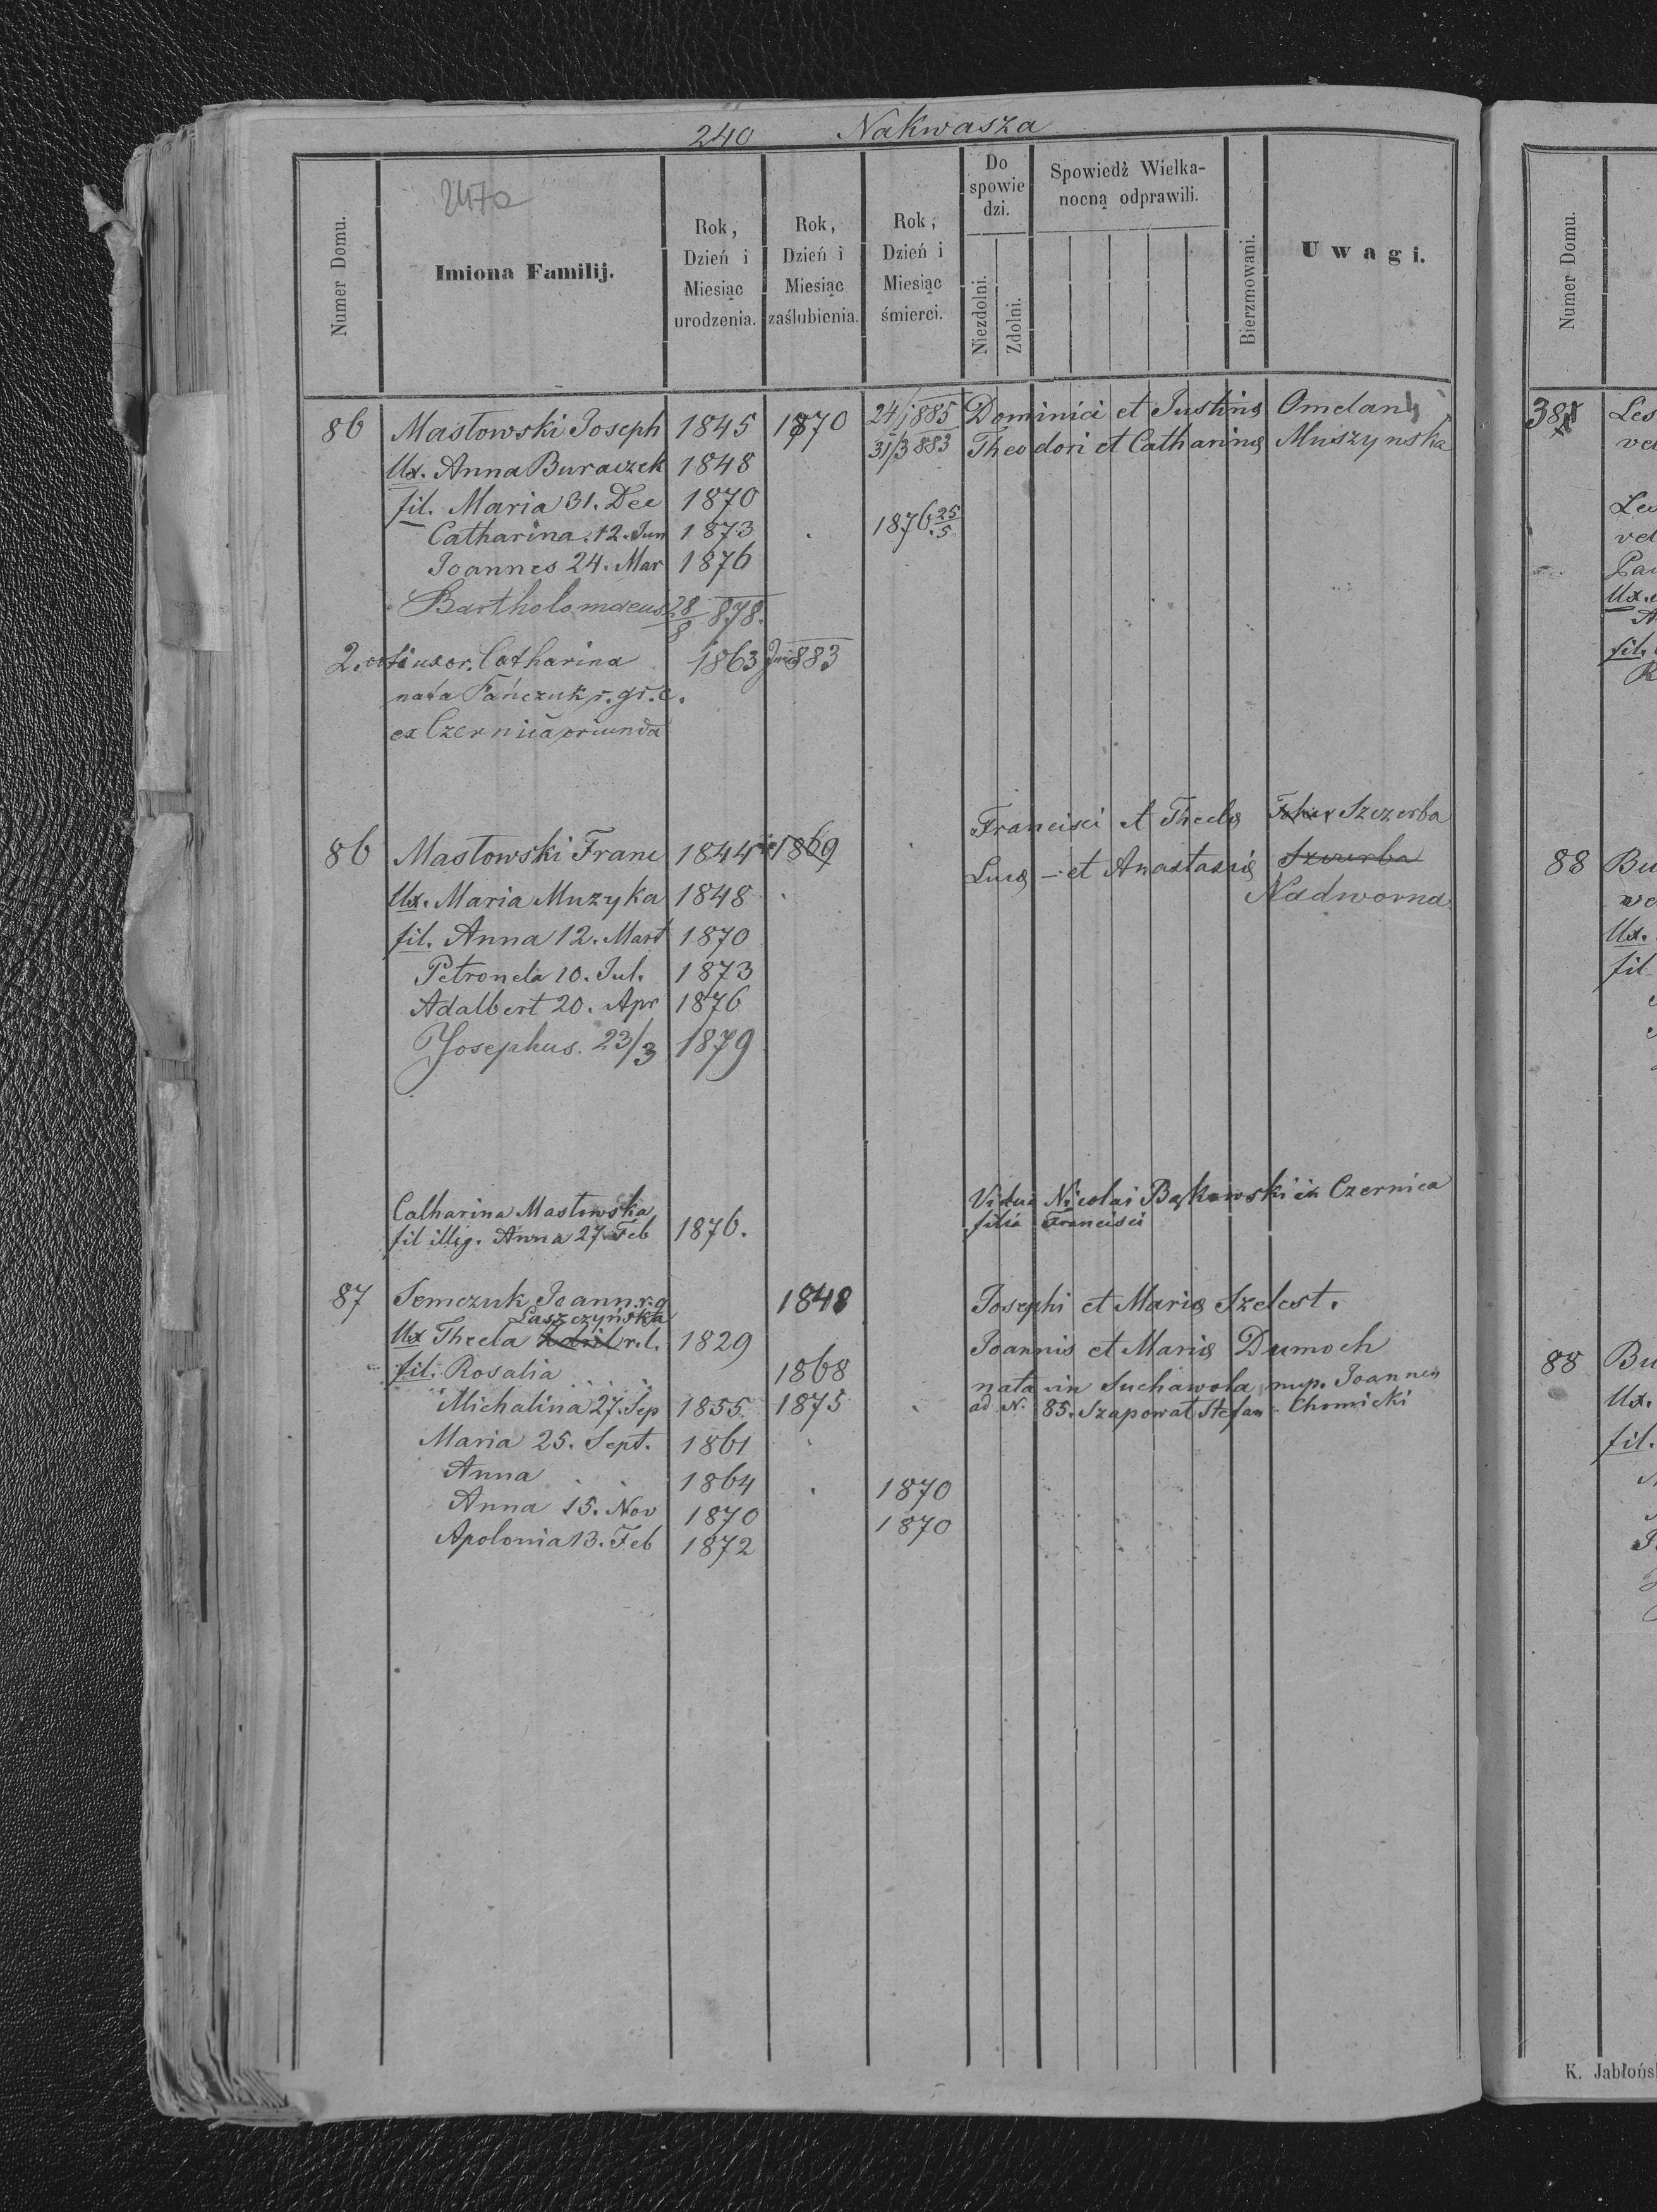 240 Nakwasza
Numer Domu.
Imiona Familij.
Rok, Dzień i Miesiąc urodzenia.
Rok, Dzień i Miesiąc zaślubienia.
Rok, Dzień i Miesiąc śmierci.
Do spowiedzi.
Niezdolni.
Zdolni.
Spowiedź Wielkanocną odprawili.
Bierzmowani.
Uwagi.
86 Masłowski Joseph 1845 1870 24/1885 Dominici et Justinę Omelan
Ux. Anna Buraczek 1848 31/3 883 Theodori et Catharinę Muszynska
fil. Maria 31. Dec 1870
Catharina. 12. Jun 1873 1876. 25/5
Joannes 24. Mar 1876
Bartholomaeus 28/8 878.
uxor. Catharina 1863 883
nata Fańczuk r. gr. c.
ex Czernica oriunda
Francisci et Theclę Szczerba
86 Masłowski Franc 1844 1869 Lucę - et Anastasię Szczerba
Ux. Maria Muzyka 1848 Nadworna
fil. Anna 12. Mart 1870
Petronela 10. Jul. 1873
Adalbert 20. Apr 1876
Josephus. 23/3 1879
Catharina Masłowska Vidua Nicolai Bąkowski in Czernica
fil illig. Anna 27 Feb 1876. filia Francisci
87 Semczuk Joann r. g 1848 Josephi et Marię Szelest.
Laszczyńska
Ux Thecla r. l. 1829 Joannis et Marię Dumoch
fil. Rosalia 1868 nata in Suchawola nup. Joannes
Michalina 27. Sep 1855 1875 ad N. 85. Szapowal Stefan - Chomicki
Maria 25. Sept. 1861
Anna 1864 1870
Anna 15. Nov 1870 1870
Apolonia 13. Feb 1872
Numer Domu.
38
88
88
K. Jabłońs